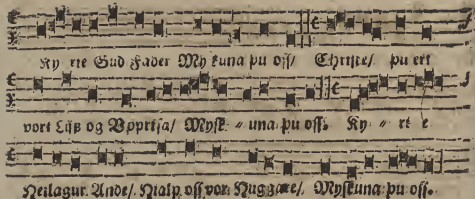 Ky rie Gud Fader My kuna þu oss/ Christe/ þu ert
vort Lijf og Vpprisa/ Mysk⸗ una þu oss. Ky ⸗ ri e
Heilagur Ande/ Hialp oss vor Huggare/ Myskuna þu oss.